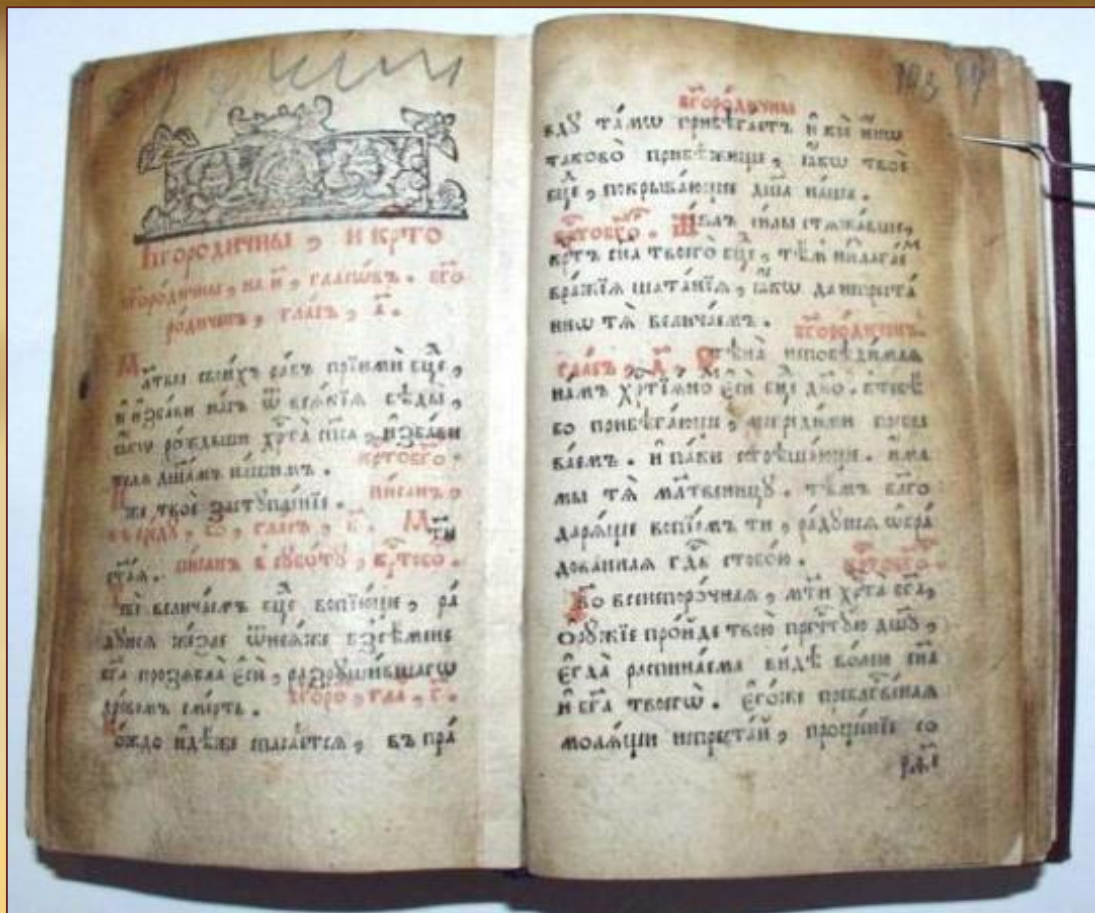 Бг҃оро́дичны , и҆ крⷭ҇то
бг҃оро́дичны , на и҃ , гласѡ́въ . бг҃о
ро́диченъ , гла́съ , а҃ .
Мл҃твы свои́хъ ра́бъ прїимѝ бц҃е ,
и҆ и҆зба́ви на́съ ѿ всѧ́кїѧ бѣды̀ ,
ро́ждьши хрⷭ҇та̀ сп҃са , и҆зба́ви
телѧ дш҃а́мъ на́шимъ . крⷭ҇тобг҃о .
И҆́же твоѐ заступле́нїе . пи́санъ ,
въ сре́ду , гла́съ , Мт҃и
ст҃а́ѧ . пи́санъ в субо́ту , крⷭ҇тобо .
велича́емъ бц҃е вопїю́ще , ра́
дуйсѧ же́зле ѿнеѧ́же безсѣ́мене
бг҃а прозѧбла̀ є҆сѝ , разруши́вшаго
дре́вомъ сме́рть . бг҃оро , гла , г҃ .
Ко́ждо и҆дѣ́же спаса́етсѧ , въ пра́
бг҃оро́дичны
вду та́мѡ прибѣга́етъ и҆ ко́е и҆́нѡ
таково̀ прибѣ́жище , ꙗ҆́кѡ твоѐ
бц҃е , покрыва́ющее дш҃а на́ша .
крⷭ҇тобг҃о . си́лы стѧжа́вше ,
крⷭ҇тъ сн҃а твоего̀ бц҃е , тѣ́м низлага́е
вра́жїѧ шата́нїѧ , ꙗ҆́кѡ да непреста́
ннѡ тѧ̀ велича́емъ . бг҃оро́диченъ .
гла́съ , д҃ . Стѣна̀ непобѣди́маѧ
на́мъ хрⷭ҇тїѧ́но є҆сѝ бц҃е дв҃о . к тебѣ̀
бо прибѣга́юще , невреди́ми пребы
ва́емъ . и҆ па́ки согрѣша́юще . и҆́ма
мы тѧ̀ мл҃твенницу . тѣ́мъ благо
дарѧ́ще вопїе́мъ ти , ра́дуйсѧ ѡ҆бра́
дованнаѧ гдⷭ҇ь с тобо́ю . крⷭ҇тобг҃о .
Дв҃о всенепоро́чнаѧ , мт҃и хрⷭ҇та̀ бг҃а ,
ѻ҆ру́жїе про́йде твою̀ прест҃у́ю дш҃у ,
є҆гда̀ распина́ема ви́дѣ во́лею сн҃а
и҆ бг҃а твоегѡ̀ . є҆го́же пребл҃гве́ннаѧ
молѧ́щи непреста́й , проще́нїе со